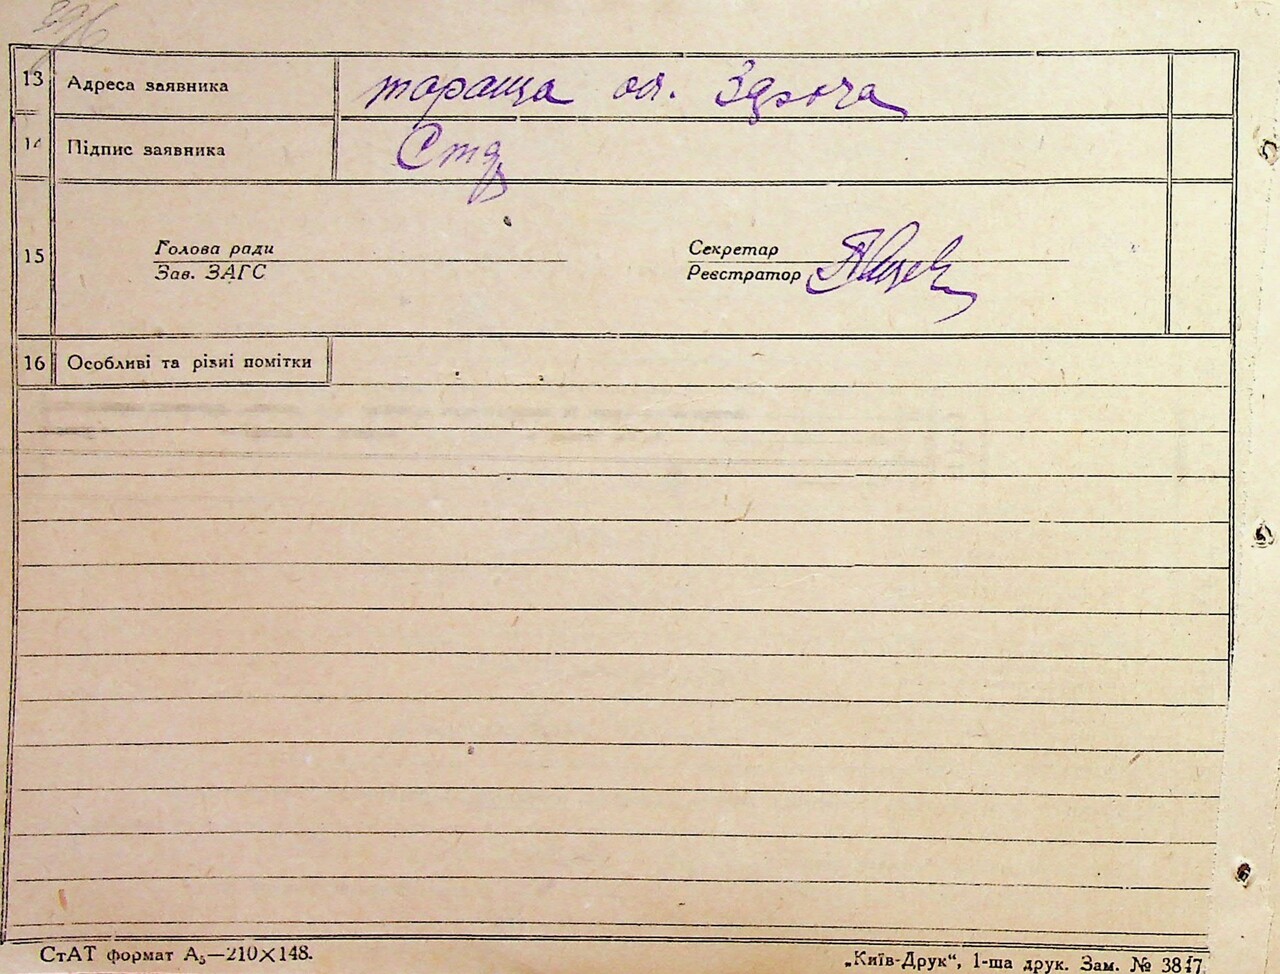 13 Адреса заявника тараща ол. Здроча
14 Підпис заявника Стд
15 Голова ради Секретар
Зав. ЗАГС Реєстратор
16 Особливі та різні помітки
СтАТ формат А₅—210×148. „Київ-Друк“, 1-ша друк. Зам. № 3817